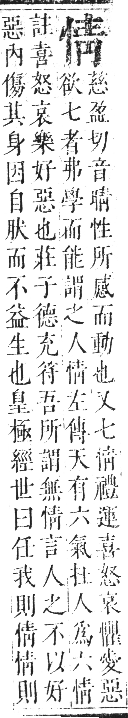 情
慈盈切音晴性所感而動也又七情禮運喜怒哀懼愛惡
欲七者弗學而能謂之人情左傳天有六氣扗人爲六情
註喜怒哀樂好惡也莊子德充符吾所謂無情言人之不以好
惡內傷其身因自肰而不益生也皇極經世曰任我則情情則